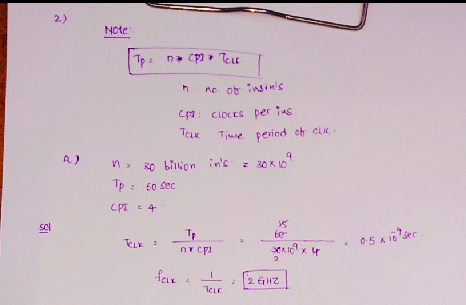 2)
Note:
Tp = n * CPI * TCLK
n no of instn's
CPI: clocks per ins
TCLK: Time period of CLK.
A) n = 30 billion in's = 30 x 10^9
Tp = 60 sec
CPI = 4
Sol
TCLK = Tp / n x CPI = 60 15 / 30 x 10^9 x 4 2 = 0.5 x 10^-9 sec.
fCLK = 1 / TCLK = 2 GHZ